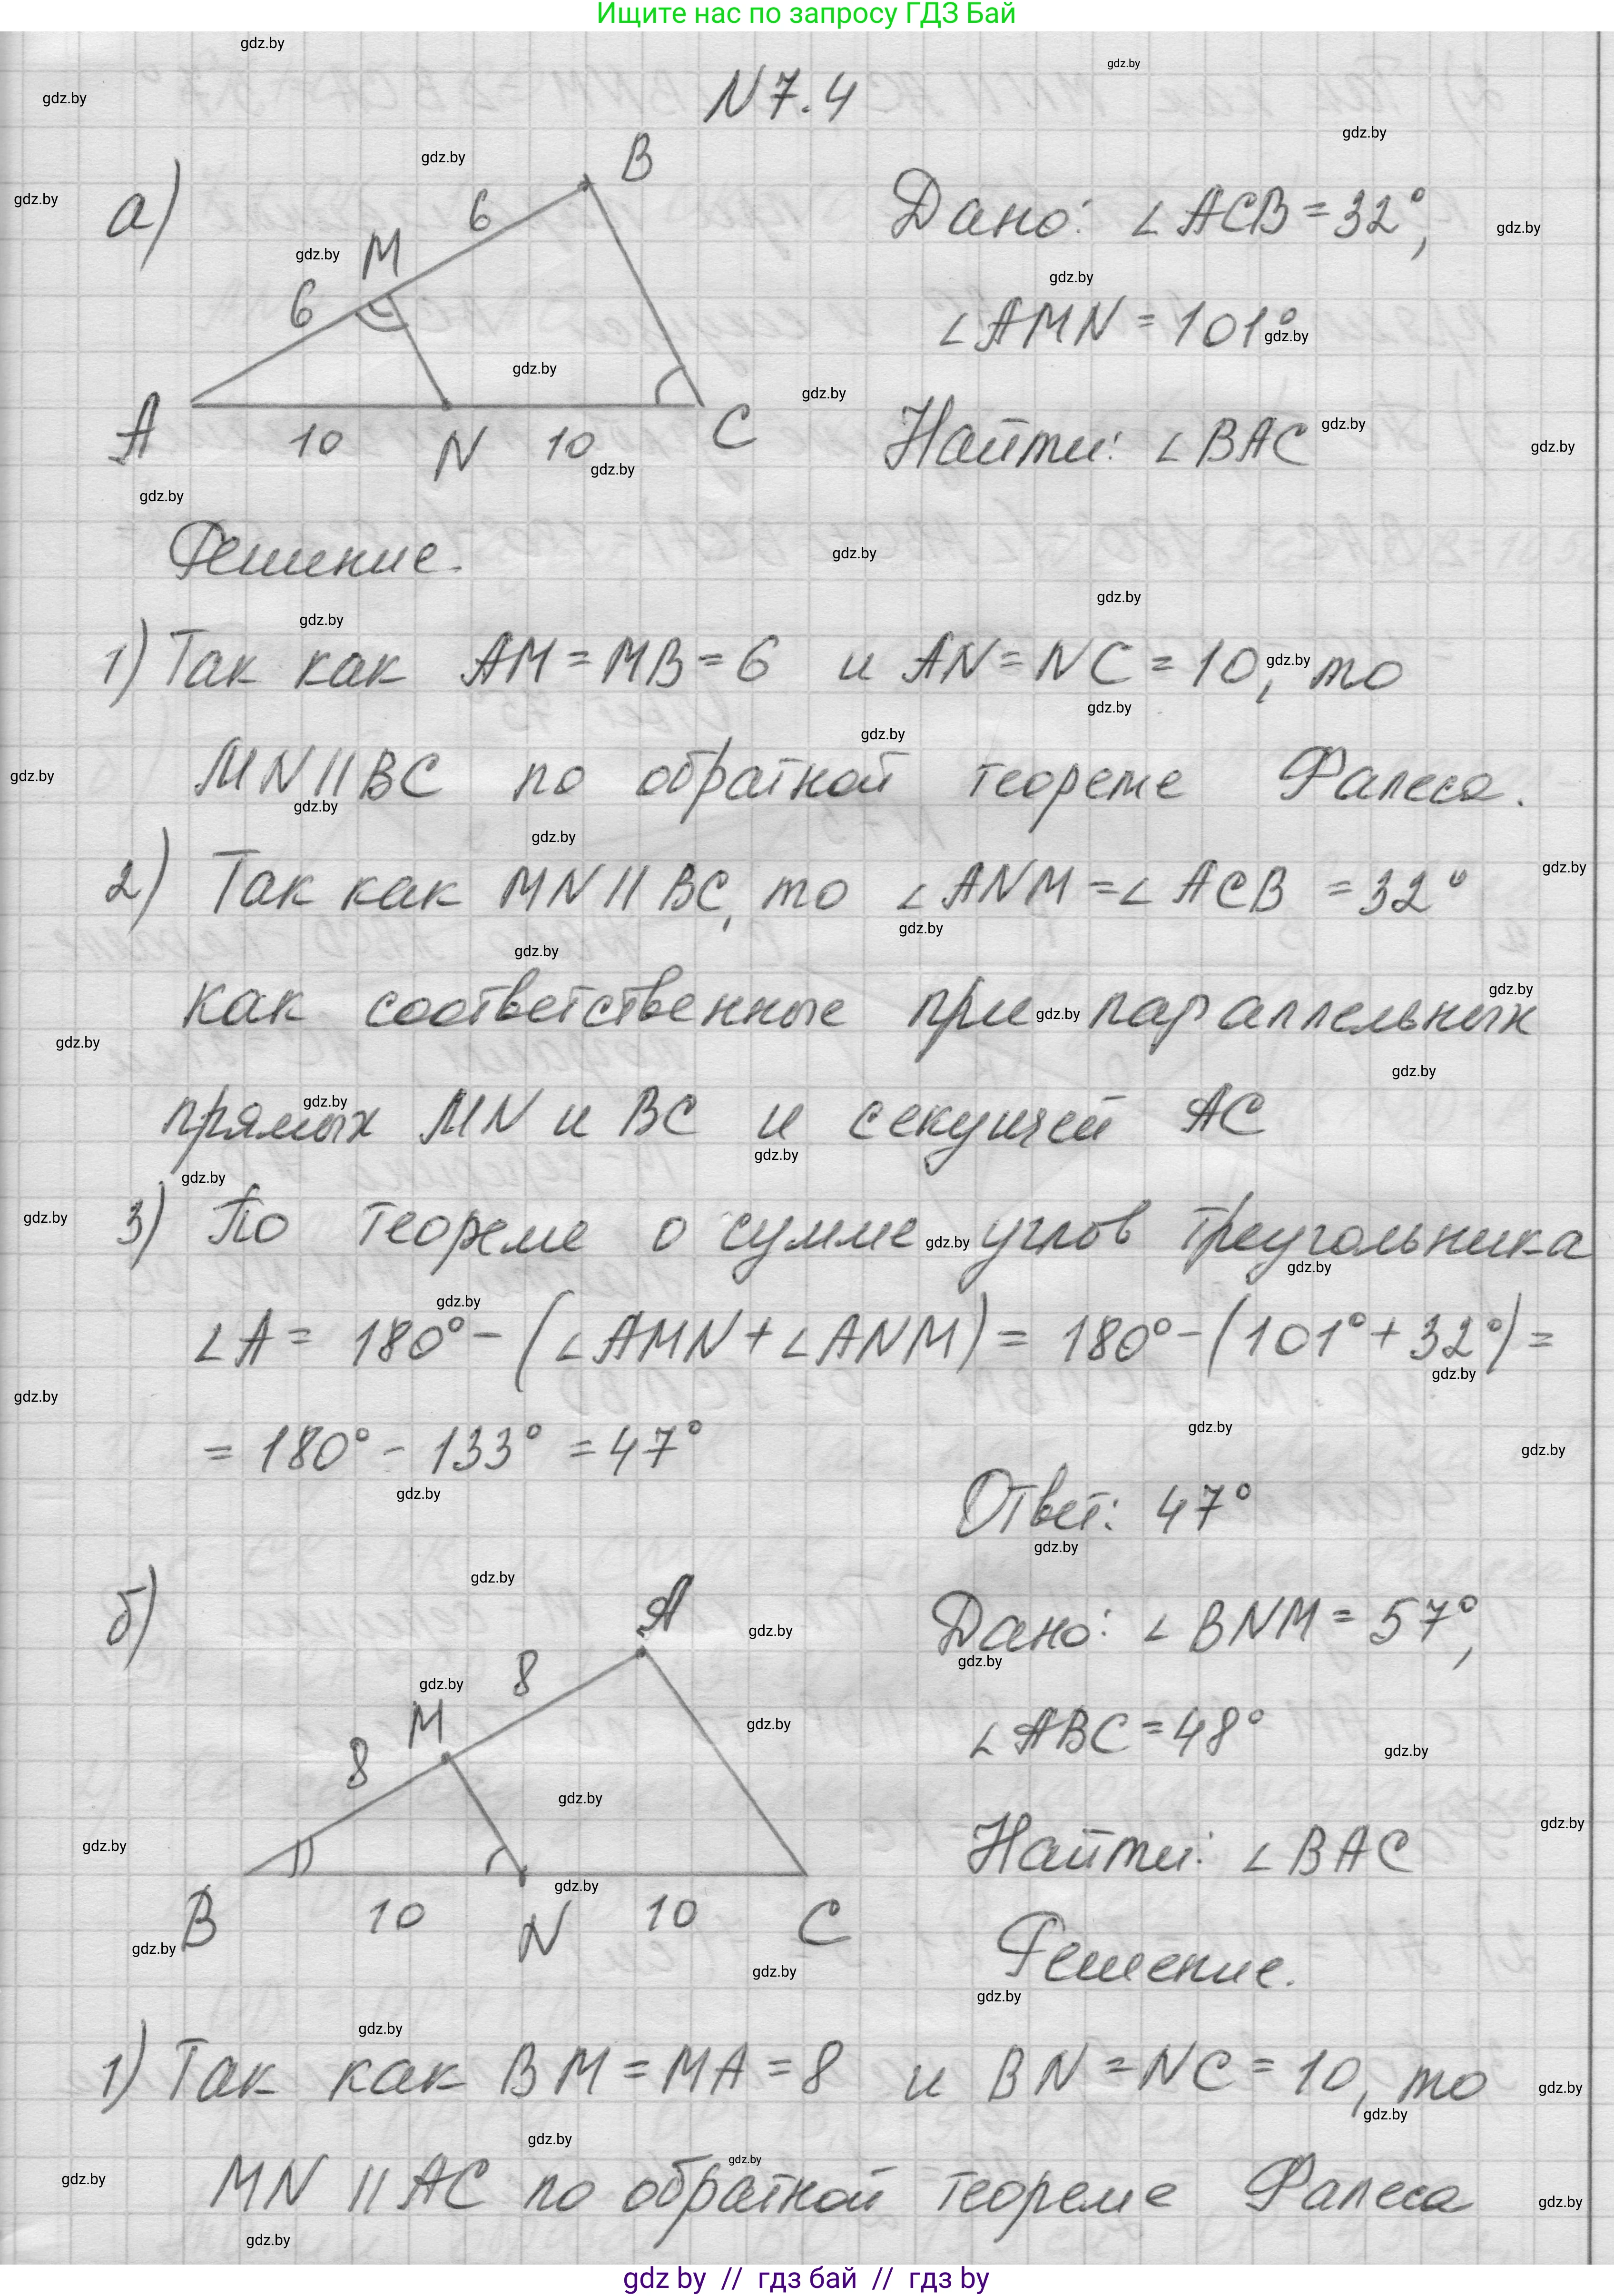 Ищите нас по запросу ГДЗ Бай
N 7.4
а)
Дано: ∠ACB = 32°,
∠AMN = 101°
Найти: ∠BAC
B
6
M
6
A
10
N
10
C
Решение.
1) Так как AM = MB = 6 и AN = NC = 10, то
MN || BC по обратной теореме Фалеса.
2) Так как MN || BC, то ∠ANM = ∠ACB = 32°
как соответственные при параллельных
прямых MN и BC и секущей AC
3) По теореме о сумме углов треугольника
∠A = 180° - (∠AMN + ∠ANM) = 180° - (101° + 32°) =
= 180° - 133° = 47°
Ответ: 47°
б)
Дано: ∠BNM = 57°,
∠ABC = 48°
Найти: ∠BAC
A
8
M
8
B
10
N
10
C
Решение.
1) Так как BM = MA = 8 и BN = NC = 10, то
MN || AC по обратной теореме Фалеса
gdz by // гдз бай // гдз by